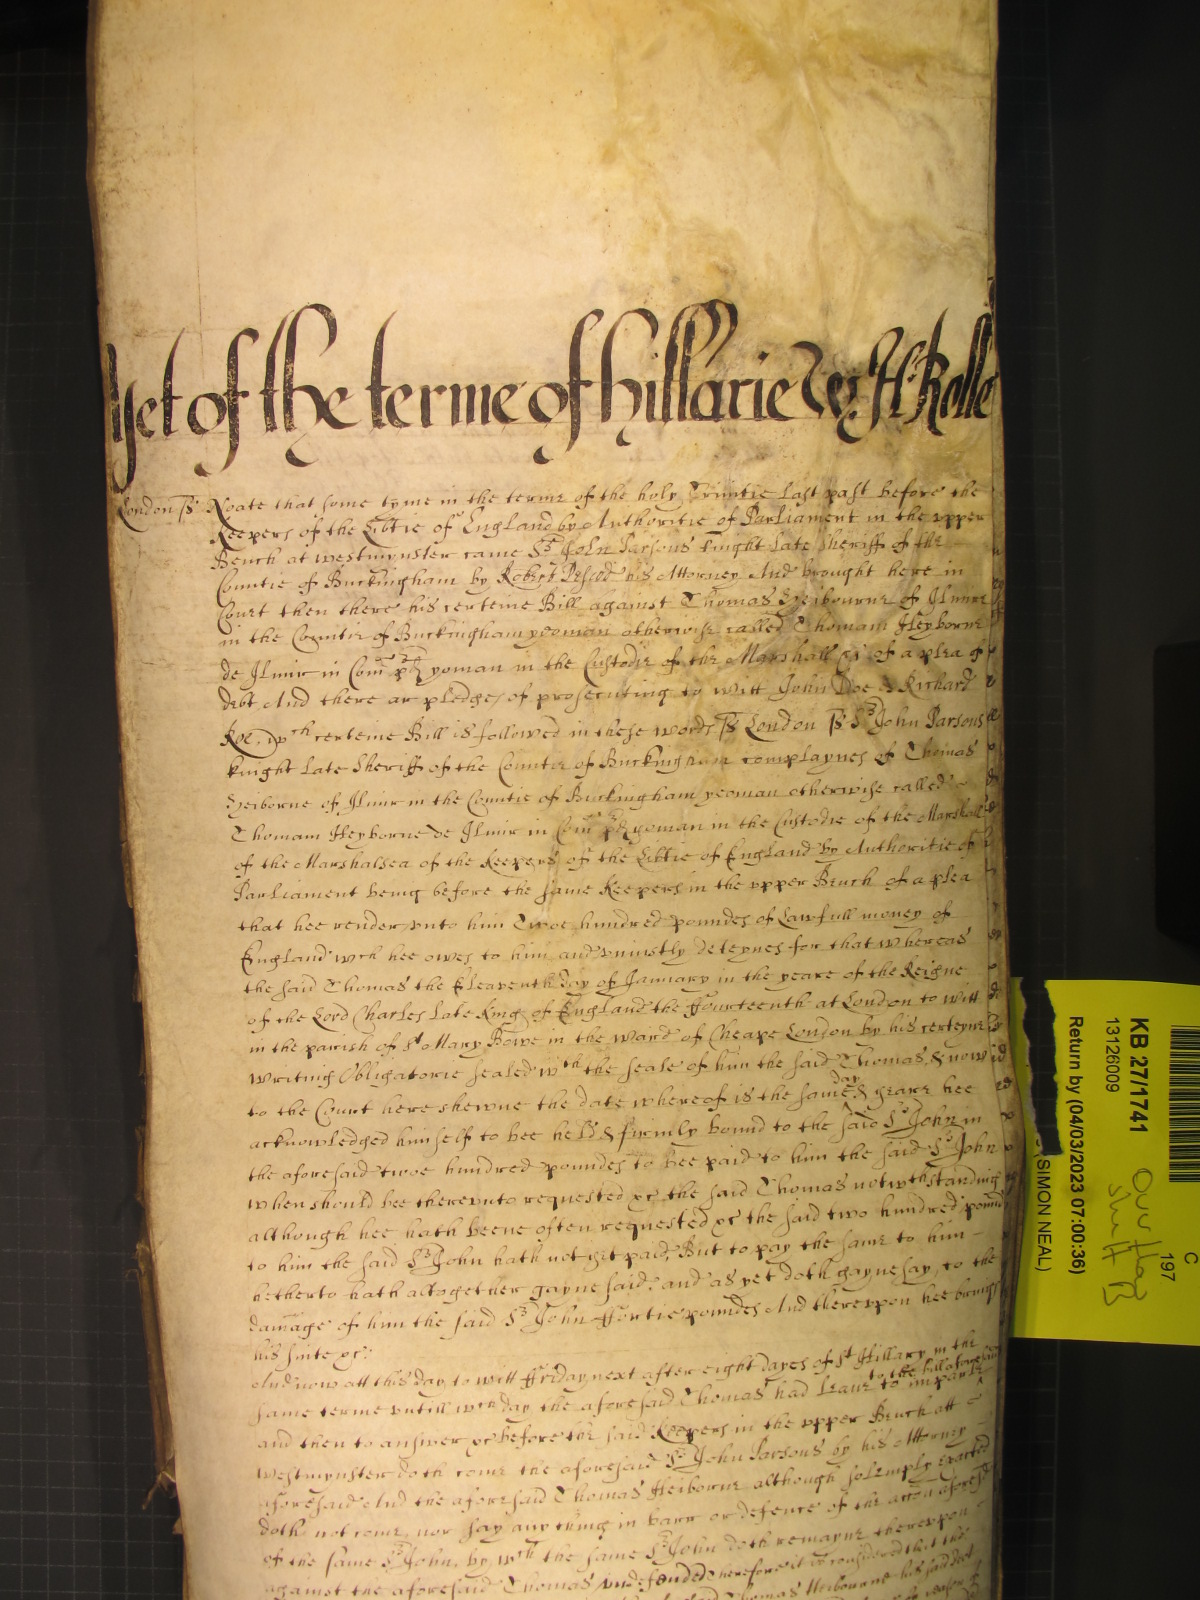 yet of the terme of hillarie Wes. H. Rolle
London ss Roate that some tyme in the terme of the holy Trinitie last past before the
Keepers of the Libtie of England by Authoritie of Parliament in the upper
Bench at westmynster came Sr John Parsons knight late Sheriff of the
Countie of Buckingham by Robert his Attorney And brought here in
Court then there his certeine Bill against Thomas Heibourne of Ilmir
in the Countie of Buckingham yeoman otherwise called Thomam Heyborne
de Ilmir in Com pd yoman in the Custodie of the Marshall &c of a plea of
debt And there ar pledges of prosecuting to witt John Doe & Richard
Roe, wch certeine Bill is followed in these words ss London ss Sr John Parsons
knight late Sheriff of the Countie of Buckingham complaynes of Thomas
Heiborne of Ilmir in the Countie of Buckingham yeoman otherwise called
Thomam Heyborne de Ilmir in Com pd yoman in the Custodie of the Marshall
of the Marshalsea of the Keepers of the Libtie of England by Authoritie of
Parliament being before the same Keepers in the upper Bench of a plea
that hee render unto him Twoe hundred poundes of Lawfull money of
England wch hee owes to him and uniustly deteynes for that whereas
the said Thomas the Eleaventh day of January in the yeare of the Reigne
of the Lord Charles late King of England the ffourteenth at London to witt
in the parish of St Mary Bowe in the ward of Cheape London by his certeyne
writing Obligatorie sealed wth the seale of him the said Thomas, & now
to the Court here shewne the date whereof is the same day & yeare hee
acknowledged himself to bee held & firmly bound to the said Sr John in
the aforesaid twoe hundred poundes to bee paid to him the said Sr John
when should bee thereunto requested &c the said Thomas notwthstanding
although hee hath beene often requested &c the said two hundred pounds
to him the said Sr John hath not yet paid, But to pay the same to him
hetherto hath altogether gaynesaid, and as yet doth gaynesay, to the
damage of him the said Sr John ffortie poundes And thereupon hee brings
his suite &c:
And now att this day, to witt ffriday next after eight dayes of St Hillary in the
same terme untill wch day the aforesaid Thomas had leave to the bill aforesaid to imparle
and then to answer &c before the said Keepers in the upper Bench att
westmynster doth come the aforesaid Sr John Parsons by his Attorney
aforesaid And the aforesaid Thomas Heibourne although solemply exacted
doth not come, nor say any thing in barr or defence of the accon aforesd
of the same Sr John, by wch the same Sr John doth remayne thereupon
against the aforesaid Thomas undefended therefore it is considered that the
Thomas Heibourne his said debt
KB 27/1741
13126009
Return by (04/03/2023 07:00:36)
(SIMON NEAL)
C
197